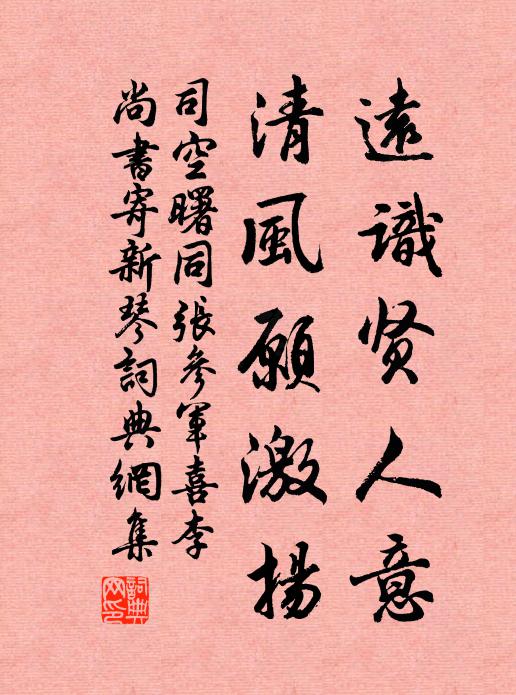 遠識贤人意
清風願激揚
司空曙同張參軍喜李
尚書寄新琴詞典網集
詞典網印